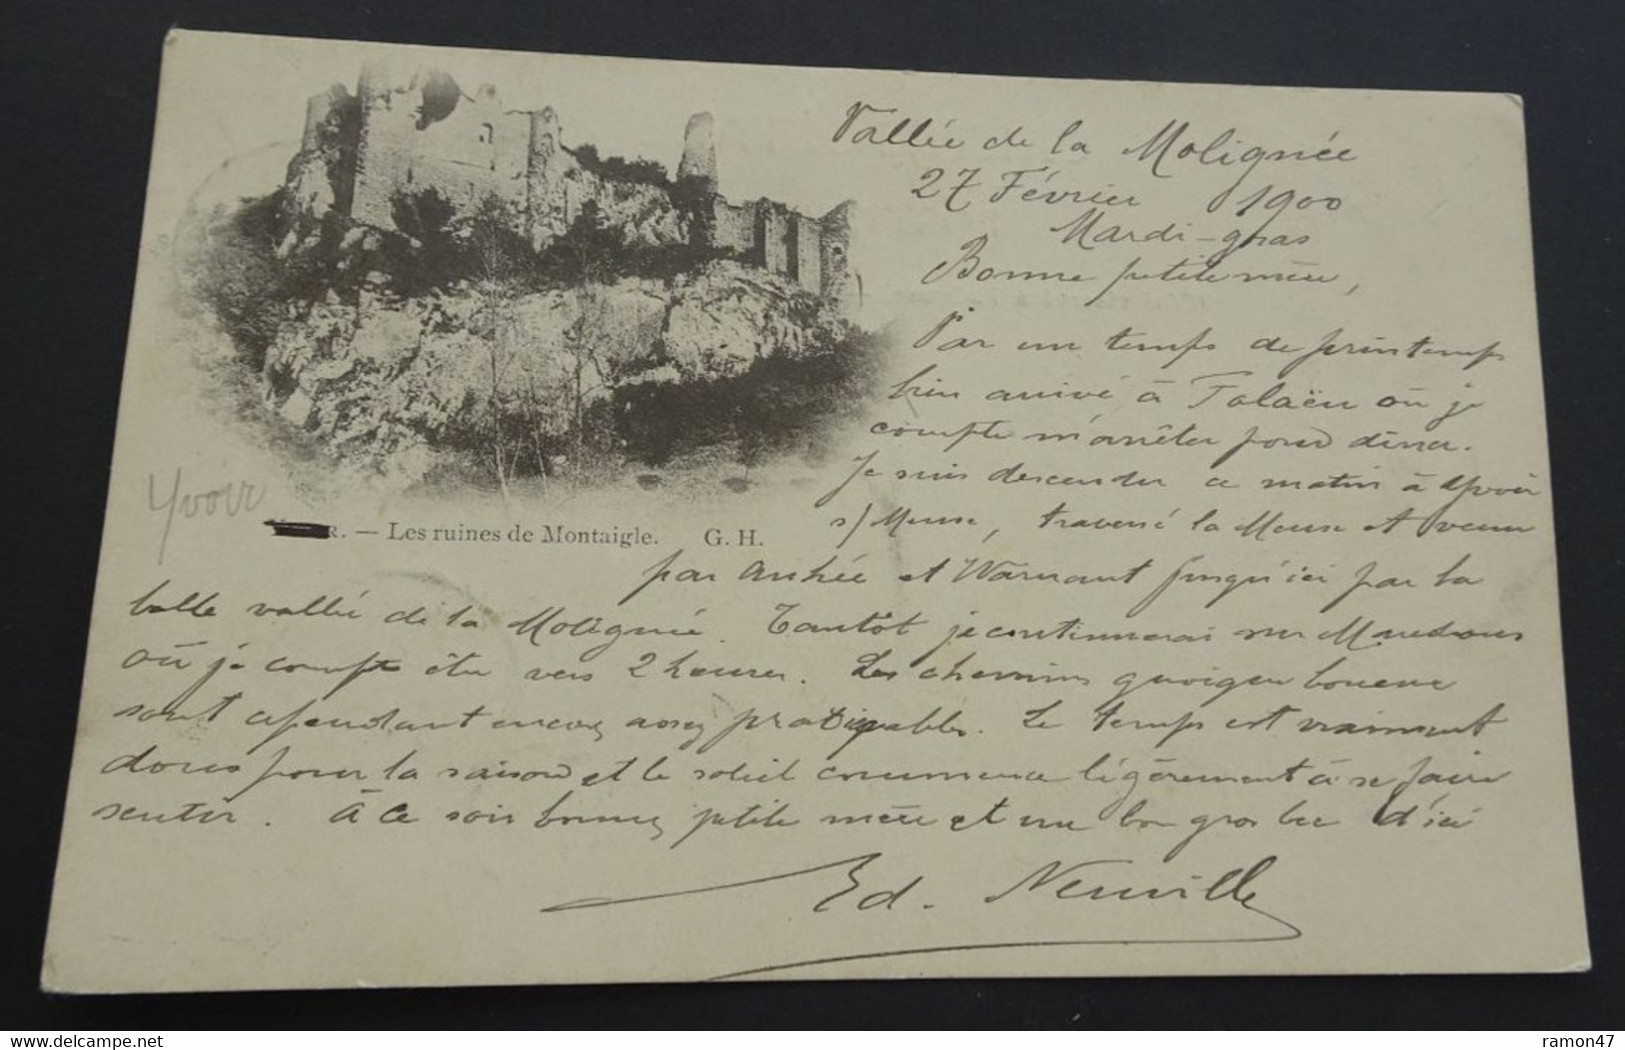 Vallée de la Molignée
27 Février 1900
Mardi-gras
Bonne petite mère,
Par un temps de printemps
bien arrivé à Falaën où je
compte m'arrêter pour dîner.
Je suis descendu ce matin à Yvoir
s/ Meuse, traversé la Meuse et venu
par Anhée et Warnant jusqu'ici par la
belle vallée de la Molignée. Tantôt je continuerai sur Maredsous
où je compte être vers 2 heures. Les chemins quoique boueux
sont cependant encore assez praticables. Le temps est vraiment
doux pour la saison et le soleil commence légèrement à se faire
sentir. À ce soir bonne petite mère et un bon gros bec d'ici
Ed. Neuville
Yvoir
R. — Les ruines de Montaigle. G. H.
delcampe.net
ramon47